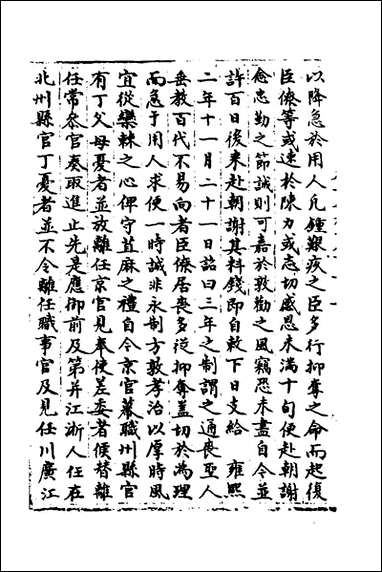 以降急於用人凡鍾艱疚之臣多行抑奪之命而起復
臣僚等或速於陳力或志切感恩未滿十旬便赴朝謝
念忠勤之節誠則可嘉於敦勸之風竊恐未盡自今並
許百日後來赴朝謝其料錢即自敕下日支給　雍熙
二年十一月二十一日詔曰三年之制謂之通喪聖人
垂教百代不易向者臣僚居喪多從抑奪蓋切於為理
而急于用人求便一時誠非永制方敦孝治以厚時風
宜從欒棘之心俾守苴麻之禮自今京官幕職州縣官
有丁父母憂者並放離任京官見奉使差委者候替離
任常叅官奏取進止先是應御前及第并江浙人任在
北州縣官丁憂者並不令離任職事官及見任川廣江